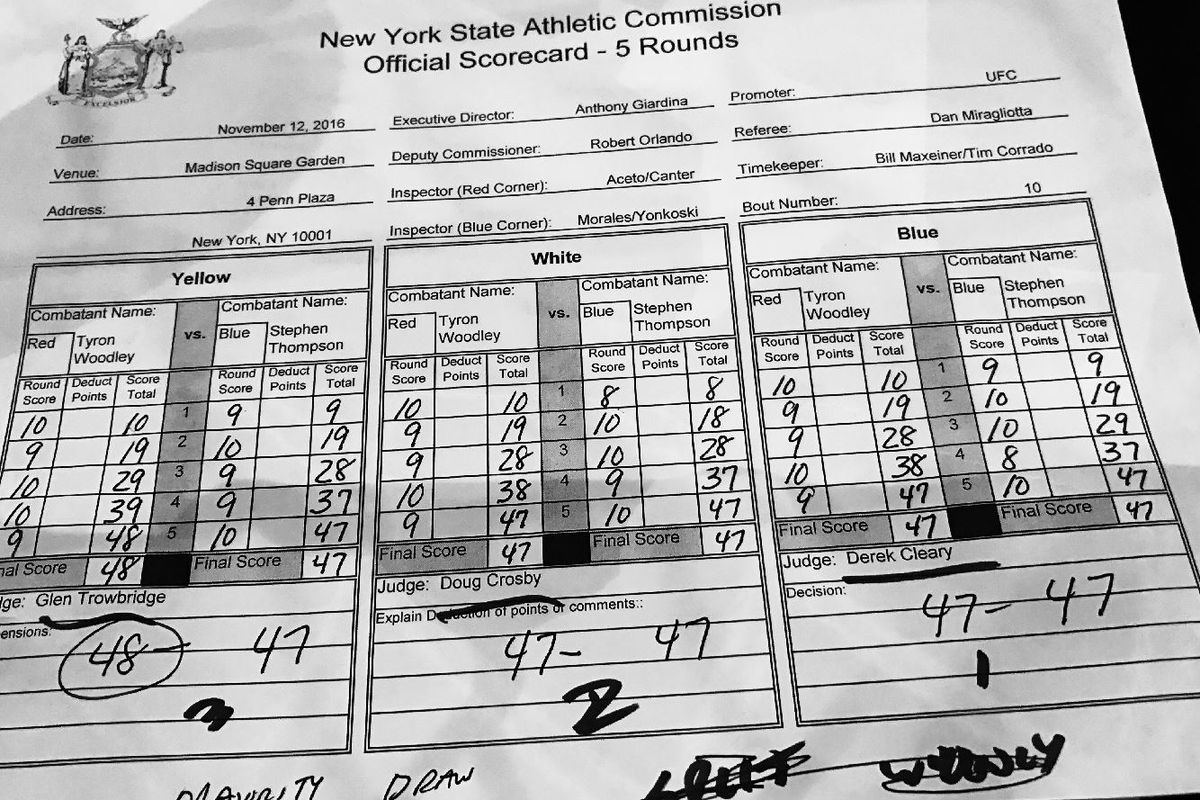 New York State Athletic Commission
Official Scorecard - 5 Rounds
EXCELSIOR
Date: November 12, 2016 Executive Director: Anthony Giardina Promoter: UFC
Venue: Madison Square Garden Deputy Commissioner: Robert Orlando Referee: Dan Miragliotta
Address: 4 Penn Plaza Inspector (Red Corner): Aceto/Canter Timekeeper: Bill Maxeiner/Tim Corrado
New York, NY 10001 Inspector (Blue Corner): Morales/Yonkoski Bout Number: 10
Yellow
Combatant Name: vs. Combatant Name:
Red Tyron Woodley Blue Stephen Thompson
Round Score Deduct Points Score Total Round Score Deduct Points Score Total
10 10 1 9 9
9 19 2 10 19
10 29 3 9 28
10 39 4 9 37
9 48 5 10 47
nal Score 48 Final Score 47
dge: Glen Trowbridge
ensions:
48 - 47
3
White
Combatant Name: vs. Combatant Name:
Red Tyron Woodley Blue Stephen Thompson
Round Score Deduct Points Score Total Round Score Deduct Points Score Total
10 10 1 8 8
9 19 2 10 18
9 28 3 10 28
10 38 4 9 37
9 47 5 10 47
Final Score 47 Final Score 47
Judge: Doug Crosby
Explain Deduction of points or comments::
47 - 47
2
Blue
Combatant Name: vs. Combatant Name:
Red Tyron Woodley Blue Stephen Thompson
Round Score Deduct Points Score Total Round Score Deduct Points Score Total
10 10 1 9 9
9 19 2 10 19
9 28 3 10 29
10 38 4 8 37
9 47 5 10 47
Final Score 47 Final Score 47
Judge: Derek Cleary
Decision:
47 - 47
1
DRAW